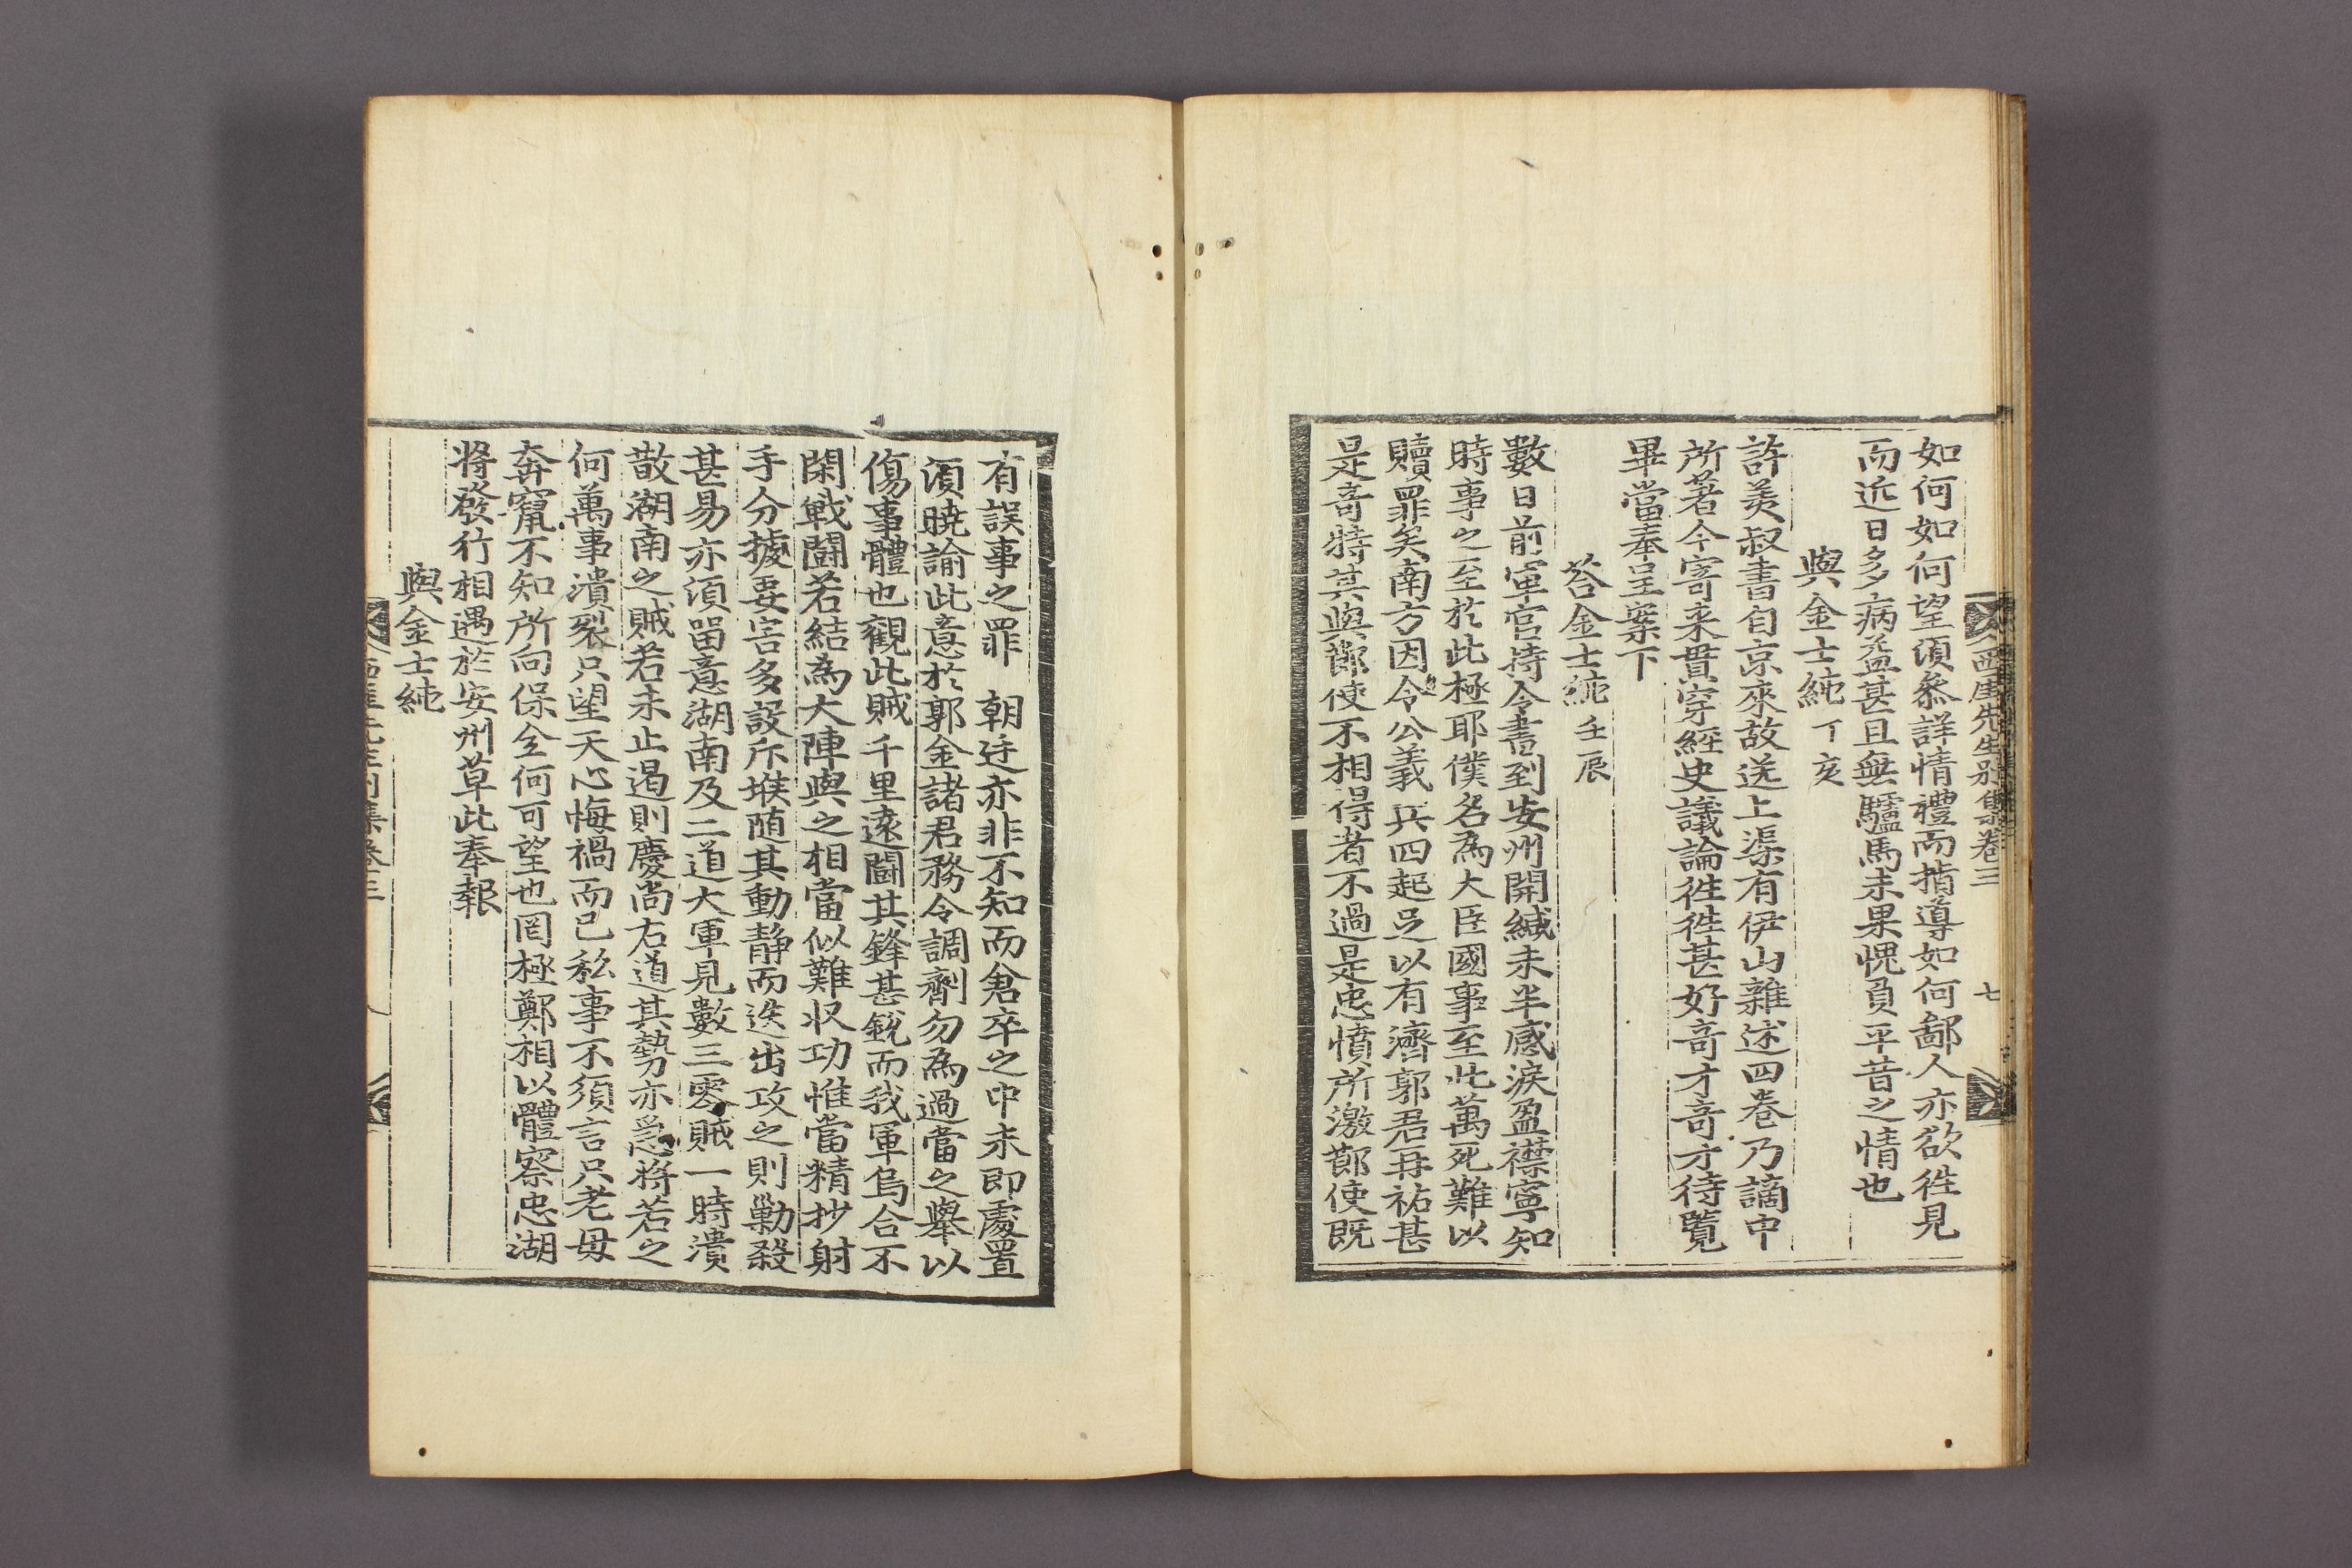 西厓先生別集卷三 七
如何如何望須叅詳情禮而指導如何鄙人亦欲徃見
而近日多病益甚且無驢馬未果愧負平昔之情也
與金士純 丁亥
許美叔書自京來故送上渠有伊山雜述四卷乃謫中
所著今寄来貫穿經史議論徃徃甚好奇才奇才待覽
畢當奉呈案下
荅金士純 壬辰
數日前軍官持令書到安州開緘未半感淚盈襟寧知
時事之至於此極耶僕名為大臣國事至此萬死難以
贖罪矣南方因令公義兵四起足以有濟郭君再祐甚
是奇特其與鄭使不相得者不過是忠憤所激鄭使既
有誤事之罪 朝廷亦非不知而倉卒之中未即處置
須曉諭此意於郭金諸君務令調劑勿為過當之舉以
傷事體也觀此賊千里遠鬪其鋒甚銳而我軍烏合不
閑戰鬪若結為大陣與之相當似難収功惟當精抄射
手分㩀要害多設斥堠随其動靜而迭出攻之則勦殺
甚易亦須留意湖南及二道大軍見數三零賊一時潰
散湖南之賊若未止遏則慶尚右道其勢亦急將若之
何萬事潰裂只望天心悔禍而已私事不須言只老母
奔竄不知所向保全何可望也罔極鄭相以體察忠湖
將發行相遇於安州草此奉報
與金士純